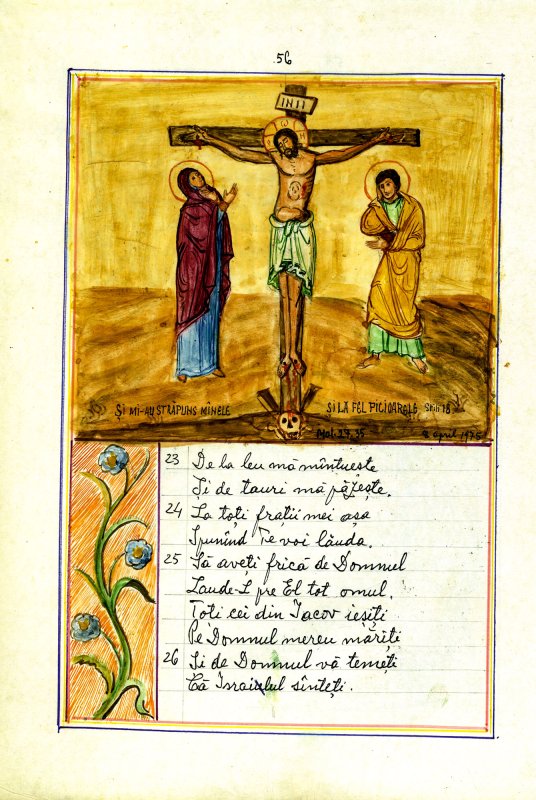 56
INII
Și MI-AU STRĂPUNS MÎNELE ȘI LA FEL PICIOARELE Stih 18
Mat 27.35 8 april 1975
23 De la leu mă mîntuește
Și de tauri mă păzește.
24 La toți frații mei așa
Spunînd Te voi lăuda.
25 Să aveți frică de Domnul
Laude-L pre El tot omul.
Toti cei din Iacov ieșiți
Pe Domnul mereu măriți
26 Și de Domnul vă temeți
Că Israilul sînteți.